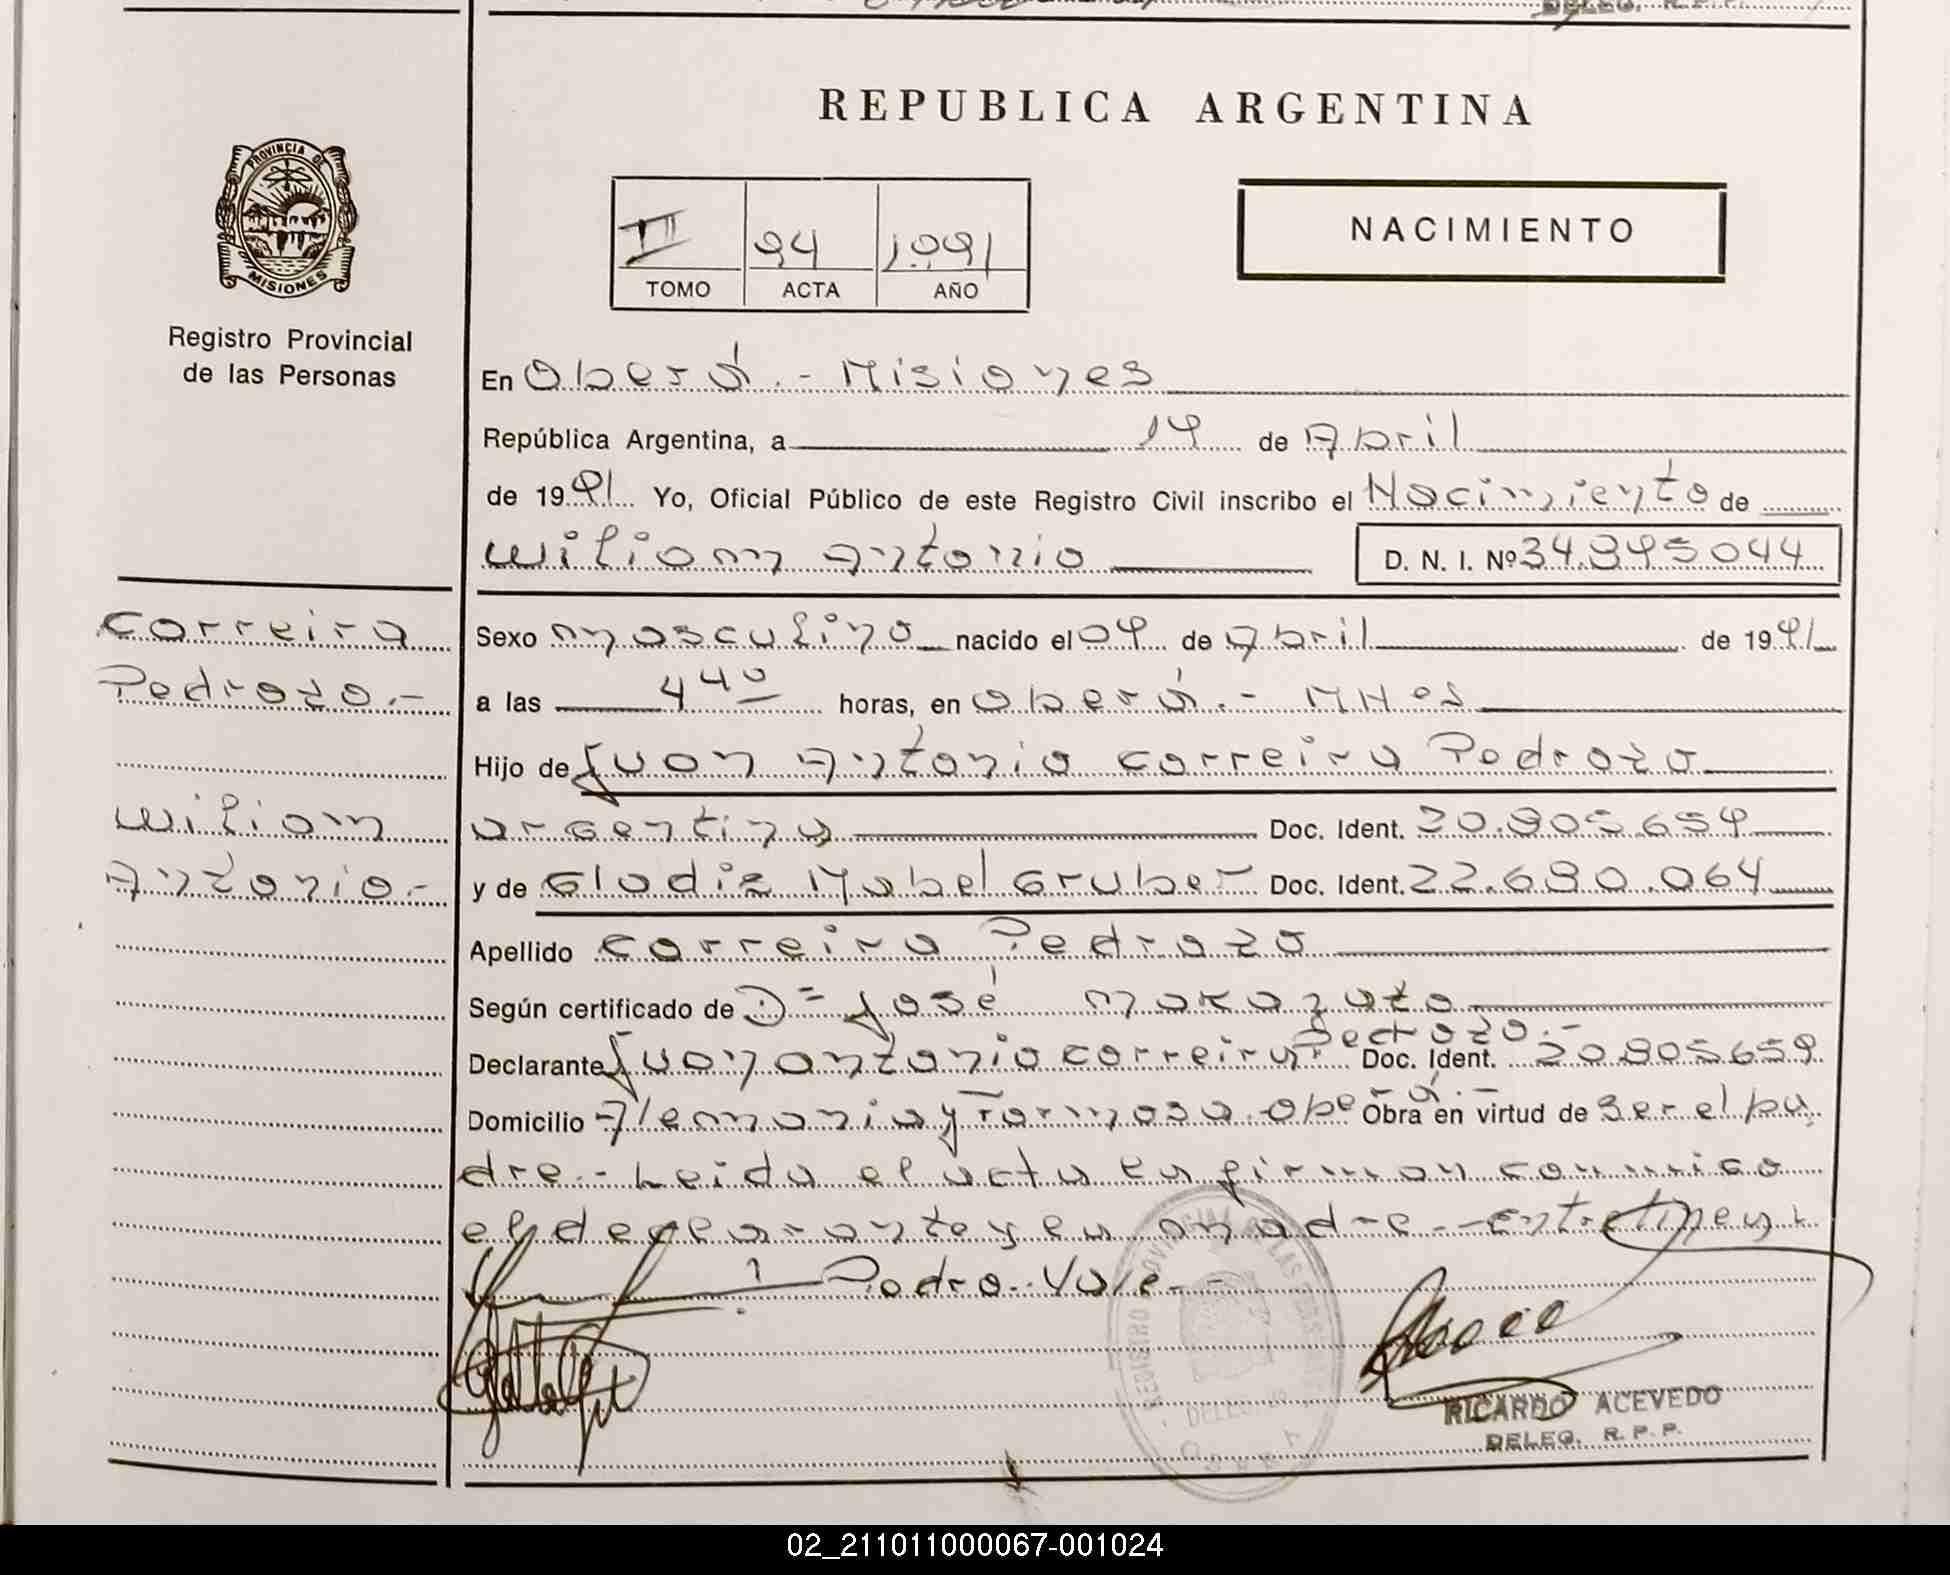 REPUBLICA ARGENTINA
PROVINCIA DE
MISIONES
Registro Provincial
de las Personas
III 94 1.991
TOMO ACTA AÑO
NACIMIENTO
En Oberá.- Misiones
República Argentina, a 19 de Abril
de 1991 Yo, Oficial Público de este Registro Civil inscribo el Nacimiento de
Wiliam Antonio D. N. I. Nº 34.895044
Correira
Pedrozo.-
Wiliam
Antonio.-
Sexo masculino nacido el 09 de Abril de 1991
a las 4 40 horas, en Oberá.- Mnes
Hijo de Juan Antonio Correira Pedrozo
argentina Doc. Ident. 20.805.659
y de Gladiz Mabel Gruber Doc. Ident. 22.680.064
Apellido Correira Pedrozo
Según certificado de D= José
Pedrozo.-
Declarante Juan Antonio Correira Doc. Ident. 20.805659
Domicilio Alemania y Formosa. Oberá.- Obra en virtud de Ser el pa
dre.- Leida el acta la firman conmigo
el declarante y la madre.- Entrelinea
Pedro. Vale.-
RICARDO ACEVEDO
DELEG. R. P. P.
02_211011000067-001024